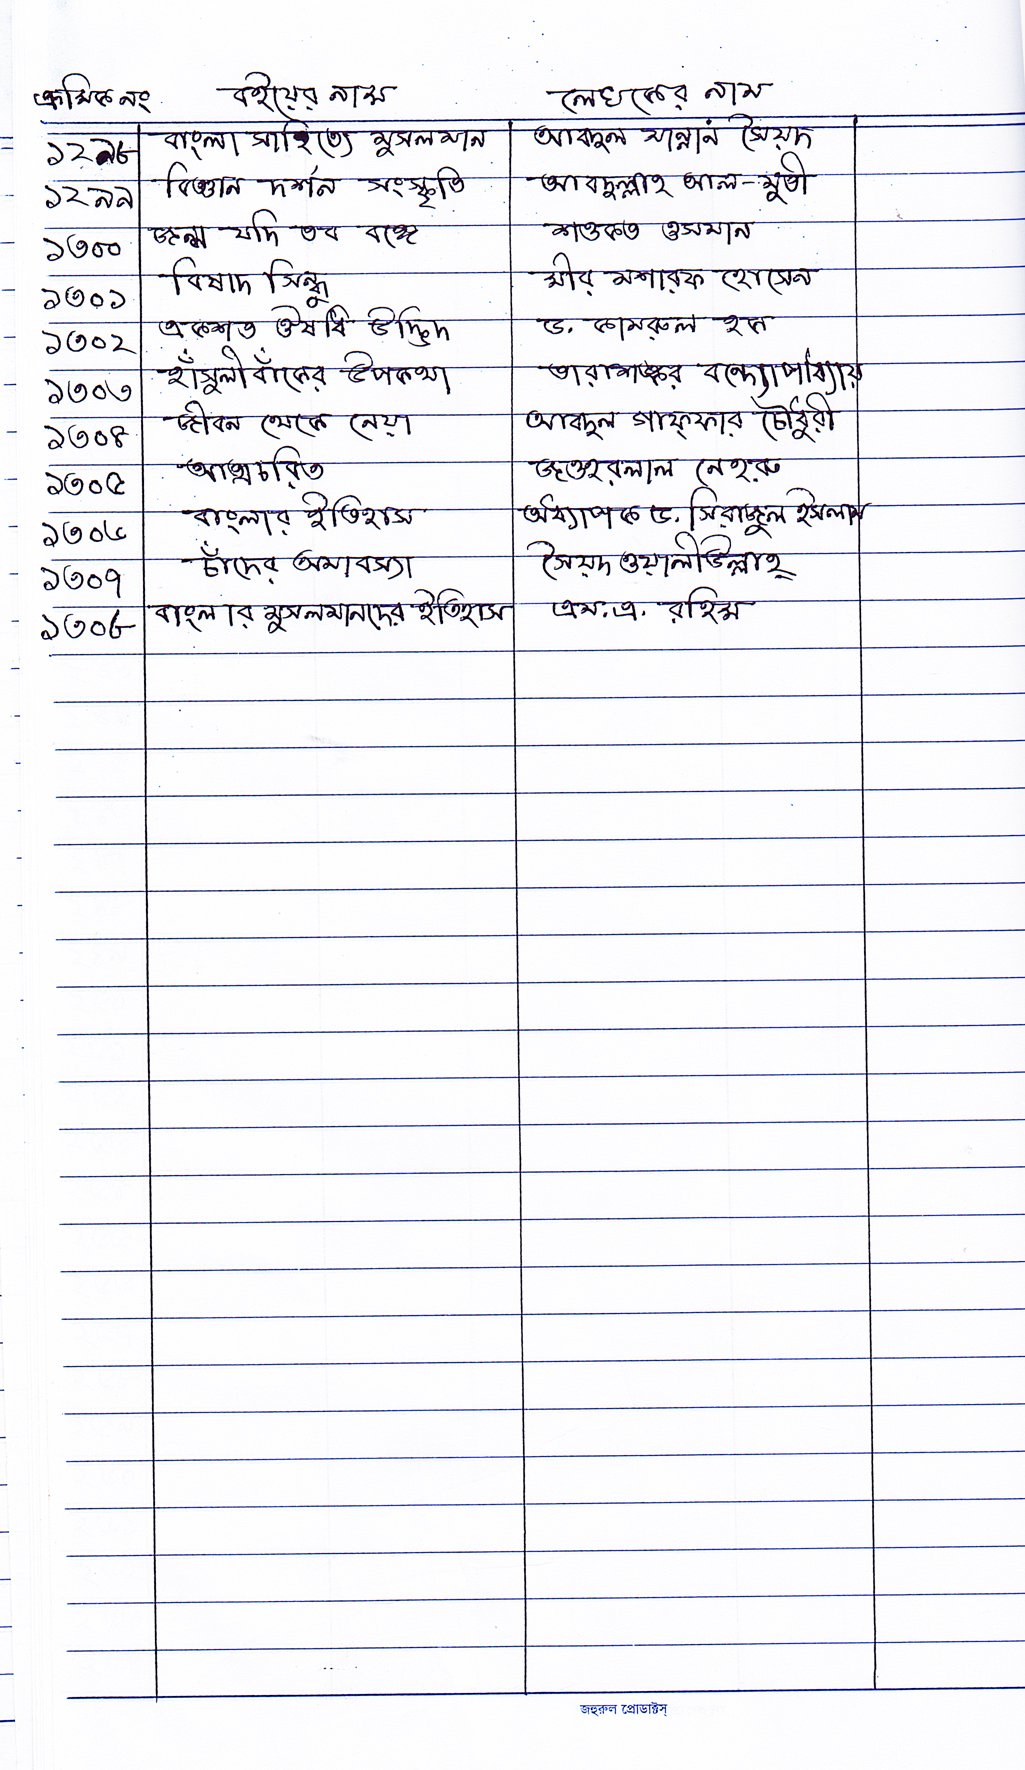 ক্রমিক নং বইয়ের নাম লেখকের নাম
১২৯৮ বাংলা সাহিত্যে মুসলমান আবদুল মান্নান সৈয়দ
১২৯৯ বিজ্ঞান দর্শন সংস্কৃতি আবদুল্লাহ আল-মুতী
১৩০০ জন্ম যদি তব বঙ্গে শওকত ওসমান
১৩০১ বিষাদ সিন্ধু মীর মশারফ হোসেন
১৩০২ একশত ঔষধি উদ্ভিদ ড. কামরুল হক
১৩০৩ হাঁসুলী বাঁকের উপকথা তারাশঙ্কর বন্দ্যোপাধ্যায়
১৩০৪ জীবন থেকে নেয়া আবদুল গাফ্ফার চৌধুরী
১৩০৫ আত্মচরিত জওহরলাল নেহরু
১৩০৬ বাংলার ইতিহাস অধ্যাপক ড. সিরাজুল ইসলাম
১৩০৭ চাঁদের অমাবস্যা সৈয়দ ওয়ালীউল্লাহ্
১৩০৮ বাংলার মুসলমানদের ইতিহাস এম.এ. রহিম
জহুরুল প্রোডাক্টস্